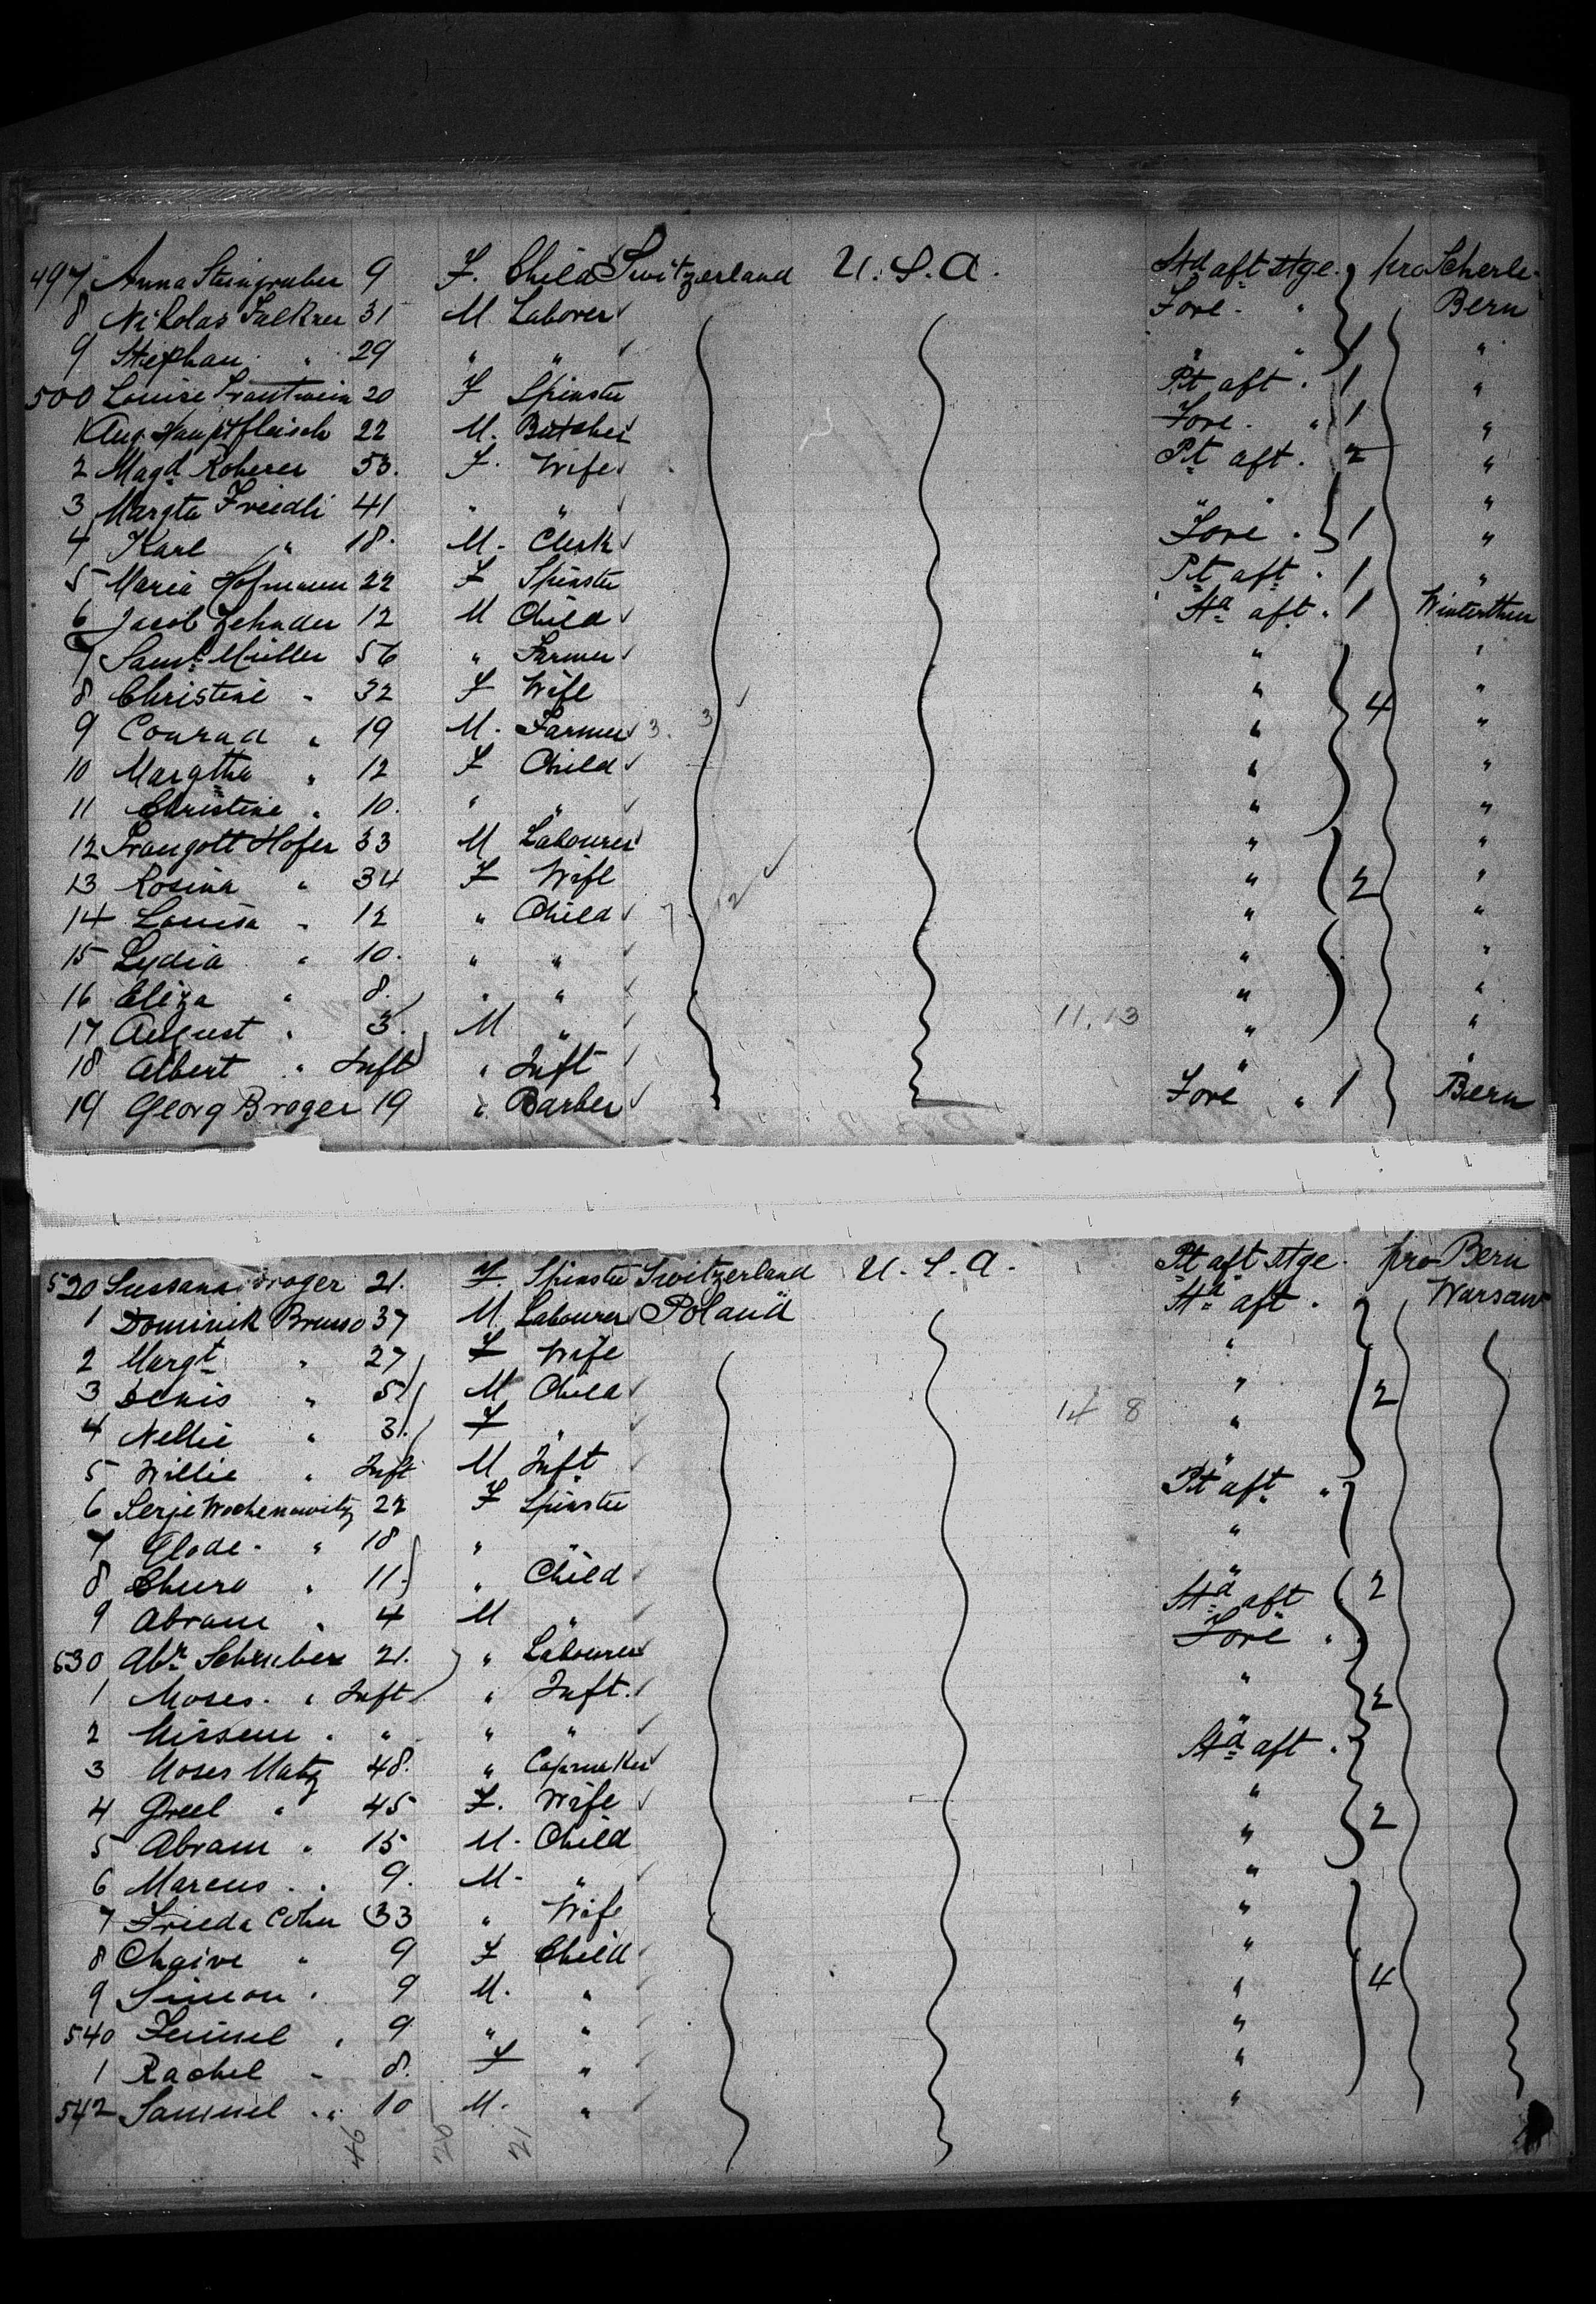 497 Anna Steingruber 9 F. Child Switzerland U.S.A. Std aft stge. pro Scherle.
8 Nikolas Falkner 31 M Laborer Fore. " Bern
9 Stephan " 29 " " " " 1 "
500 Louise Trautwein 20 F Spinster Pt aft. 1 "
1 Aug. Hauptfleisch 22 M. Butcher Fore. " 1 "
2 Magd Roherer 53. F. Wife Pt aft. 2 "
3 Margta Friedli 41 " " " " "
4 Karl " 18. M. Clerk Fore. 1 "
5 Maria Hofmann 22 F Spinster Pt aft. 1 "
6 Jacob Zehnder 12 M Child Std aft. 1 Winterthur
7 Saml Müller 56 " Farmer " "
8 Christine " 32 F Wife " 4 "
9 Conrad " 19 M. Farmer 3. 3 " "
10 Margtha " 12 F Child " "
11 Christine " 10. " " " "
12 Traugott Hofer 33 M Labourer " "
13 Rosina " 34 F Wife " 2 "
14 Louisa " 12 " Child 7 12 " "
15 Lydia " 10. " " " "
16 Eliza " 8. " " " "
17 August " 3. M " 11.13 " "
18 Albert " Inft " Inft " "
19 Georg Broger 19 " Barber Fore " 1 Bern
520 Sussana Broger 21. F. Spinster Switzerland U.S.A. Pt aft stge. pro Bern
1 Dominick Brusso 37 M Labourer Poland Std aft. Warsaw
2 Margt " 27 F Wife "
3 Denis " 5 M Child " 2
4 Nellie " 3 F " 14 8 "
5 Willie " Inft M Inft "
6 Serje Wochenowitz 22 F Spinster Pt aft "
7 Glode. " 18 " " "
8 " 11. " Child "
9 Abram " 4 M " Std aft 2
530 Abr Schruber 21. " Labourer Fore "
1 Moses. " Inft " Inft. "
2 " " " " " 2
3 Moses Matz 48. " Capmaker Std aft.
4 " 45 F. Wife "
5 Abram " 15 M. Child " 2
6 Marcus " 9. M. " "
7 Frieda Cohn 33 " Wife "
8 Chaive " 9 F Child "
9 Simon " 9 M. " " 4
540 " 9 " " "
1 Rachel " 8. F " "
542 Samuel " 10 M. " "
46 26 21